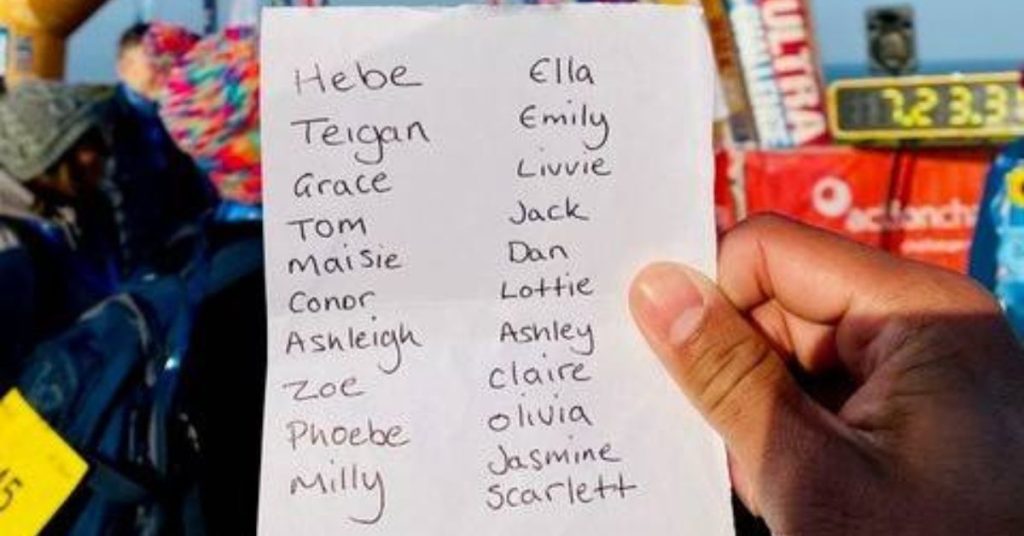 Hebe
Teigan
Grace
Tom
Maisie
Conor
Ashleigh
Zoe
Phoebe
Milly
Ella
Emily
Livvie
Jack
Dan
Lottie
Ashley
Claire
Olivia
Jasmine
Scarlett
ULTRA
7.23.3